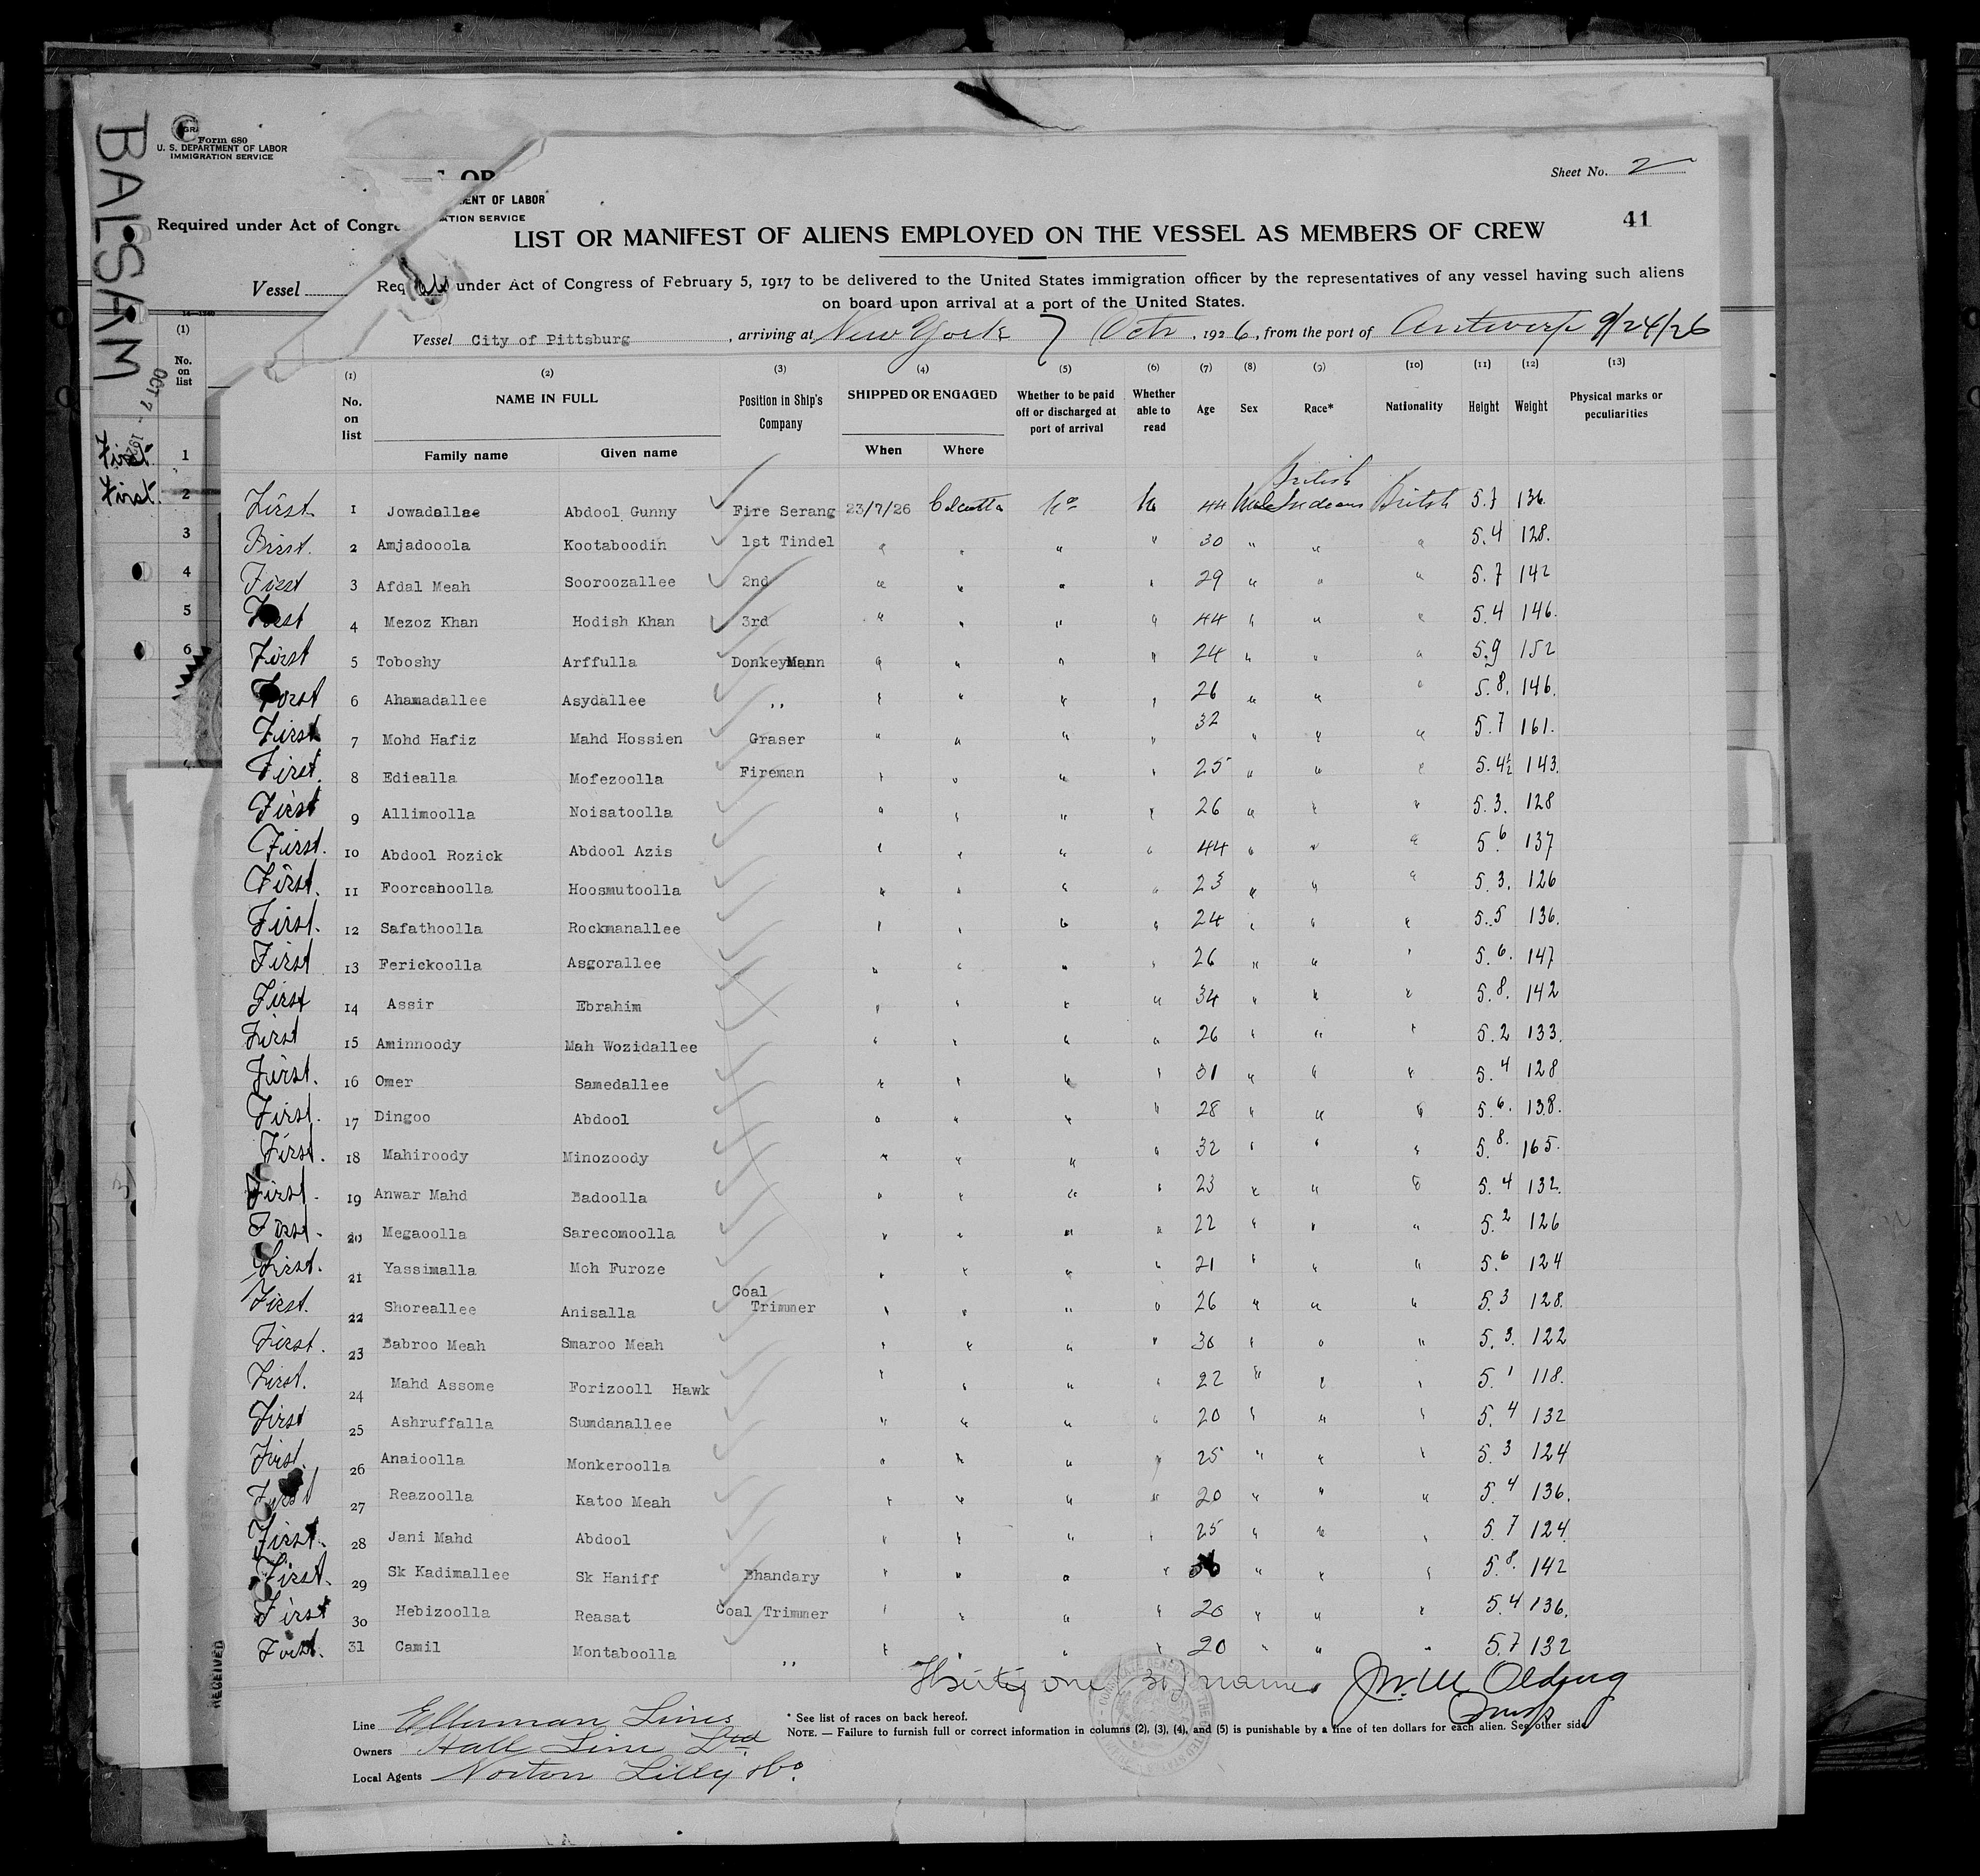 BALSAM
Form 680
U. S. DEPARTMENT OF LABOR
IMMIGRATION SERVICE
Required under Act of Congre
Vessel
OCT 7 -
(1)
No.
on
list
First 1
First. 2
3
4
5
6
RECEIVED
Sheet No. 2
41
ENT OF LABOR
ATION SERVICE
LIST OR MANIFEST OF ALIENS EMPLOYED ON THE VESSEL AS MEMBERS OF CREW
under Act of Congress of February 5, 1917 to be delivered to the United States immigration officer by the representatives of any vessel having such aliens
on board upon arrival at a port of the United States.
Vessel City of Pittsburg, arriving at New York 7 Octr, 1926, from the port of Antwerp 9/24/26
(1) (2) (3) (4) (5) (6) (7) (8) (9) (10) (11) (12) (13)
No. on list NAME IN FULL Position in Ship's Company SHIPPED OR ENGAGED Whether to be paid off or discharged at port of arrival Whether able to read Age Sex Race* Nationality Height Weight Physical marks or peculiarities
Family name Given name When Where
First 1 Jowadallae Abdool Gunny Fire Serang 23/7/26 Calcutta No No 44 Male British Indians British 5.7 136
First. 2 Amjadooola Kootaboodin 1st Tindel " " " " 30 " " " 5.4 128.
First 3 Afdal Meah Sooroozallee 2nd " " " " 29 " " " 5.7 142
First 4 Mezoz Khan Hodish Khan 3rd " " " " 44 " " " 5.4 146.
First 5 Toboshy Arffulla Donkey Mann " " " " 24 " " " 5.9 152
First 6 Ahamadallee Asydallee ,, " " " " 26 " " " 5.8. 146.
First 7 Mohd Hafiz Mahd Hossien Graser " " " " 32 " " " 5.7 161.
First. 8 Ediealla Mofezoolla Fireman " " " " 25 " " " 5.4½ 143.
First 9 Allimoolla Noisatoolla " " " " 26 " " " 5.3. 128
First. 10 Abdool Rozick Abdool Azis " " " " 44 " " " 5.6 137
First. 11 Foorcahoolla Hoosmutoolla " " " " 23 " " " 5.3. 126
First. 12 Safathoolla Rockmanallee " " " " 24 " " " 5.5 136.
First 13 Ferickoolla Asgorallee " " " " 26 " " " 5.6. 147
First 14 Assir Ebrahim " " " " 34 " " " 5.8. 142
First 15 Aminnoody Mah Wozidallee " " " " 26 " " " 5.2 133.
First. 16 Omer Samedallee " " " " 31 " " " 5.4 128
First. 17 Dingoo Abdool " " " " 28 " " " 5.6. 138.
First. 18 Mahiroody Minozoody " " " " 32 " " " 5.8. 165.
First. 19 Anwar Mahd Badoolla " " " " 23 " " " 5.4 132.
First. 20 Megaoolla Sarecomoolla " " " " 22 " " " 5.2 126
First. 21 Yassimalla Moh Furoze " " " " 21 " " " 5.6 124
First. 22 Shoreallee Anisalla Coal Trimmer " " " " 26 " " " 5.3 128.
First. 23 Babroo Meah Smaroo Meah " " " " 30 " " " 5.3. 122
First. 24 Mahd Assome Forizooll Hawk " " " " 22 " " " 5.1 118.
First 25 Ashruffalla Sumdanallee " " " " 20 " " " 5.4 132
First. 26 Anaioolla Monkeroolla " " " " 25 " " " 5.3 124
First 27 Reazoolla Katoo Meah " " " " 20 " " " 5.4 136.
First. 28 Jani Mahd Abdool " " " " 25 " " " 5.7 124
First. 29 Sk Kadimallee Sk Haniff Bhandary " " " " " " " 5.8. 142
First 30 Hebizoolla Reasat Coal Trimmer " " " " 20 " " " 5.4 136.
First. 31 Camil Montaboolla ,, " " " " 20 " " " 5.7 132
Thirty one (31) names
Line Ellerman Lines
Owners Hall Line Ltd
Local Agents Norton Lilly & Co.
* See list of races on back hereof.
NOTE. — Failure to furnish full or correct information in columns (2), (3), (4), and (5) is punishable by a fine of ten dollars for each alien. See other side